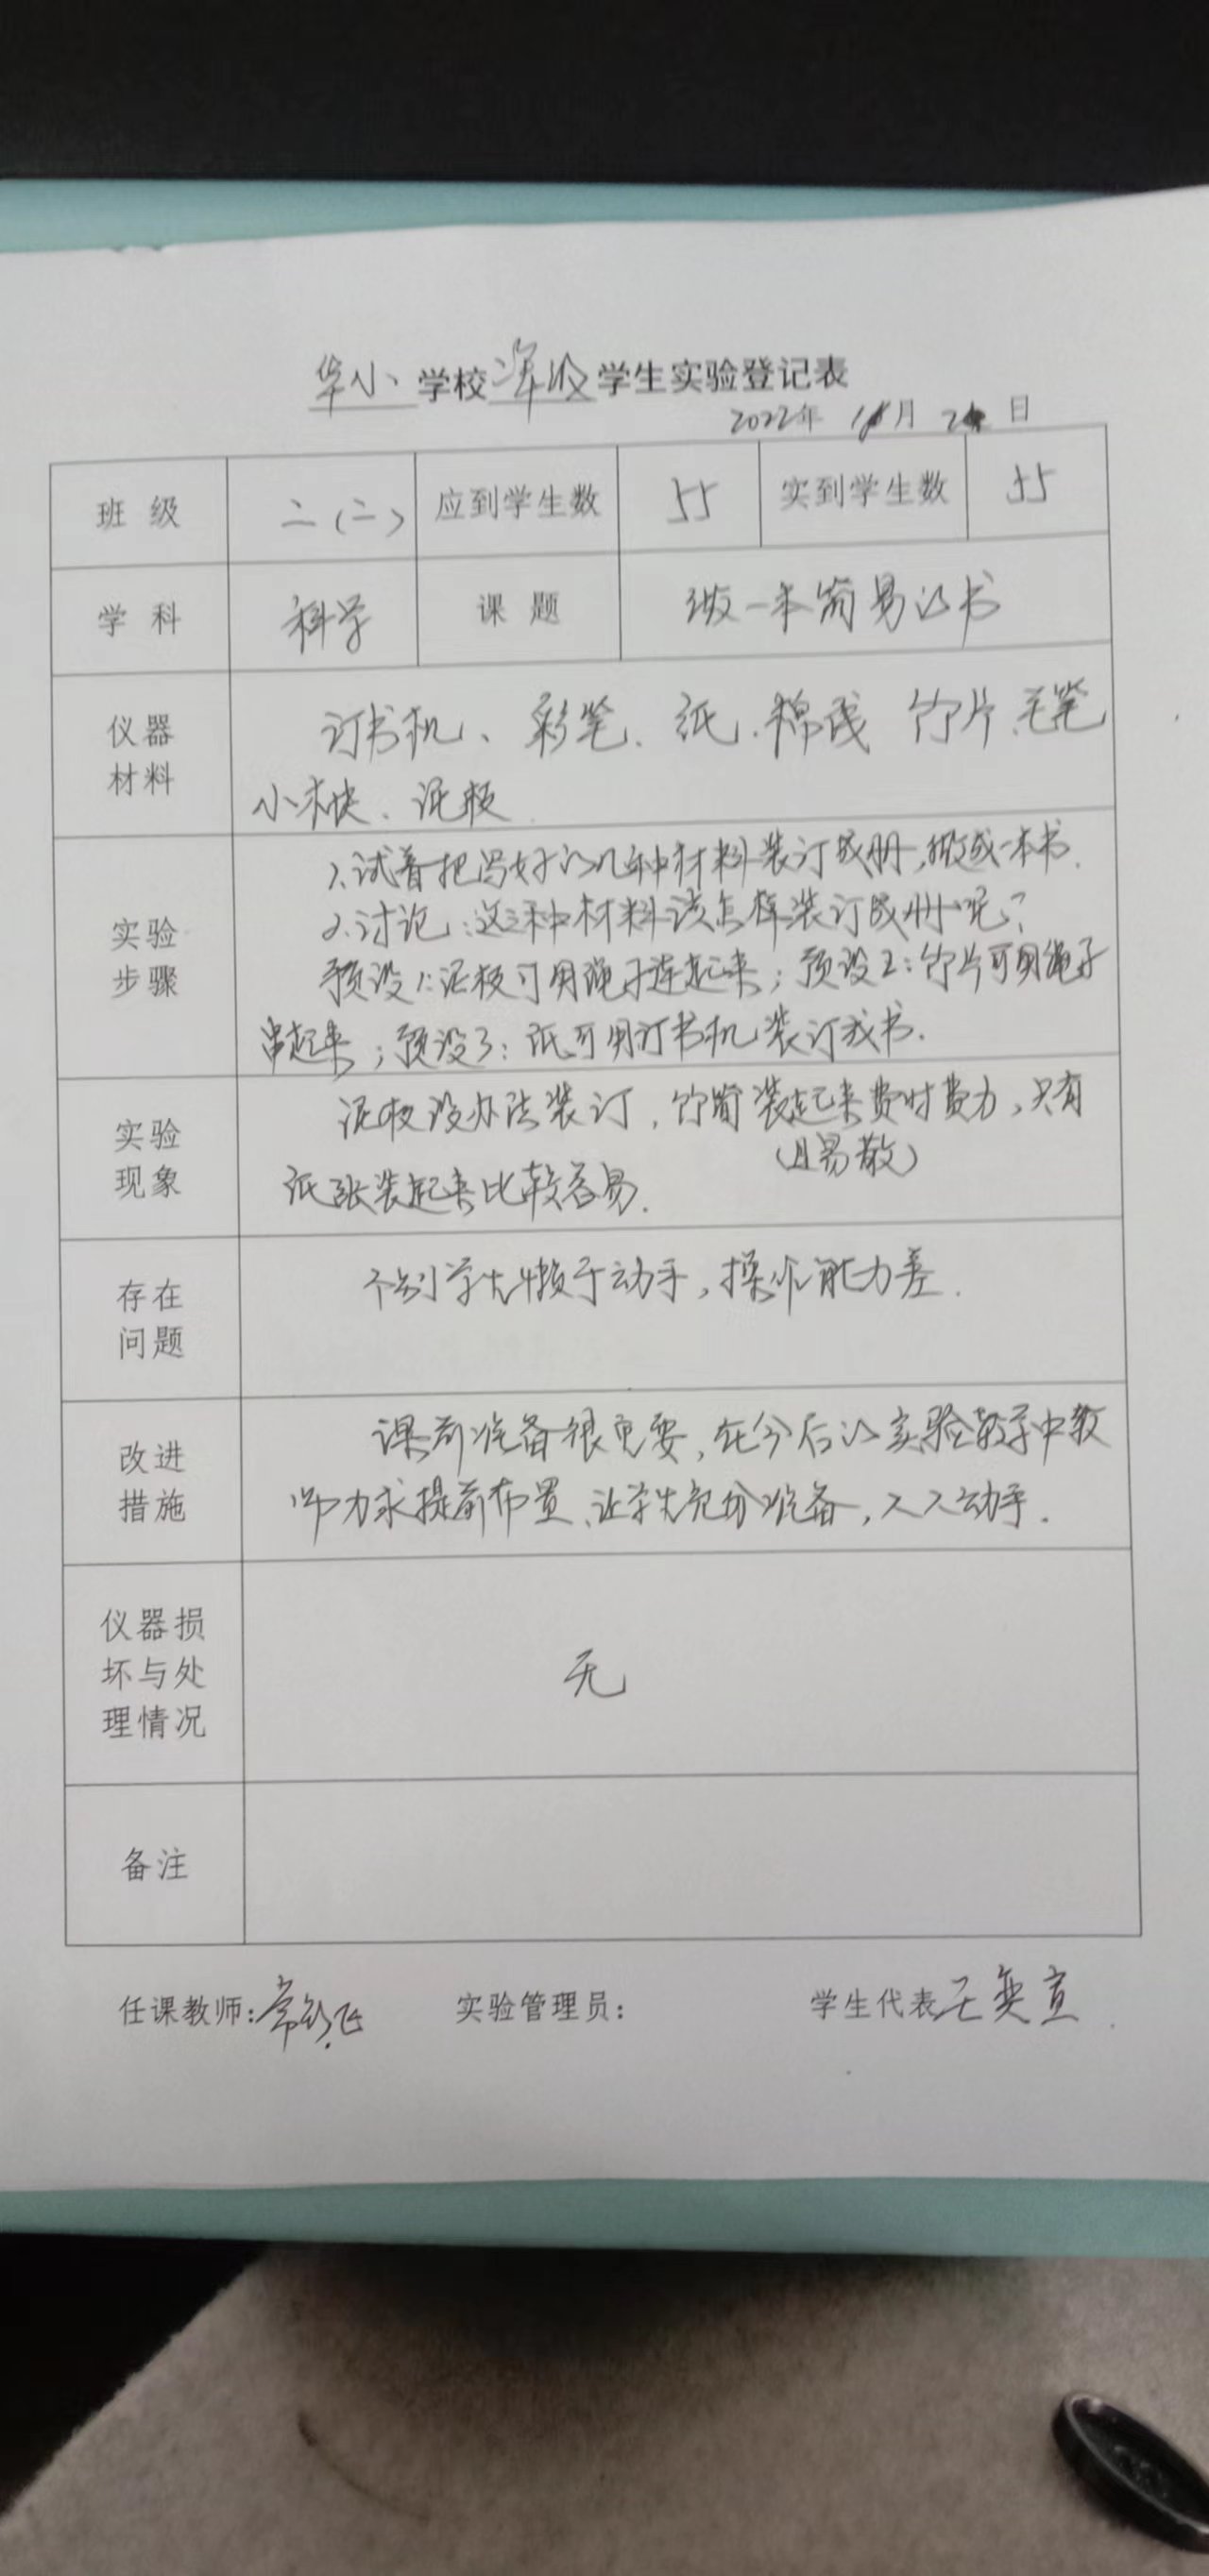 华小 学校 二年级 学生实验登记表
2022年 月 日
班级 二(二) 应到学生数 55 实到学生数 55
学科 科学 课题 做一本简易的书
仪器材料 订书机、彩笔、纸、棉线 竹片、毛笔
小木块、泥板
实验步骤 1、试着把写好的几种材料装订成册,做成一本书.
2、讨论:这三种材料该怎样装订成册呢?
预设1:泥板可用绳子连起来;预设2:竹片可用绳子
串起来;预设3:纸可用订书机装订成书.
实验现象 泥板没办法装订,竹简装起来费时费力,只有
(且易散)
纸张装起来比较容易.
存在问题 个别学生懒于动手,操作能力差.
改进措施 课前准备很重要,在今后的实验教学中教
师力求提前布置、让学生充分准备,人人动手.
仪器损坏与处理情况 无
备注
任课教师: 实验管理员: 学生代表